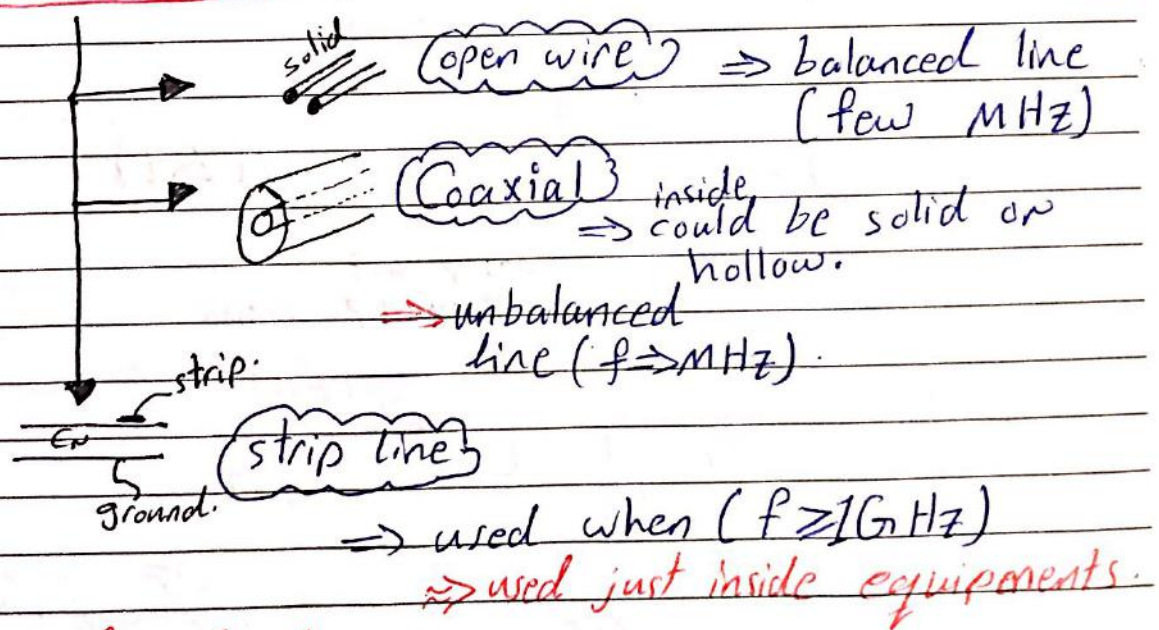 solid
open wire ⇒ balanced line
(few MHz)
Coaxial inside
⇒ could be solid or
hollow.
⇒ unbalanced
line (f⇒MHz).
strip.
εr
strip line
ground.
⇒ used when (f≥1GHz)
⇒ used just inside equipments.